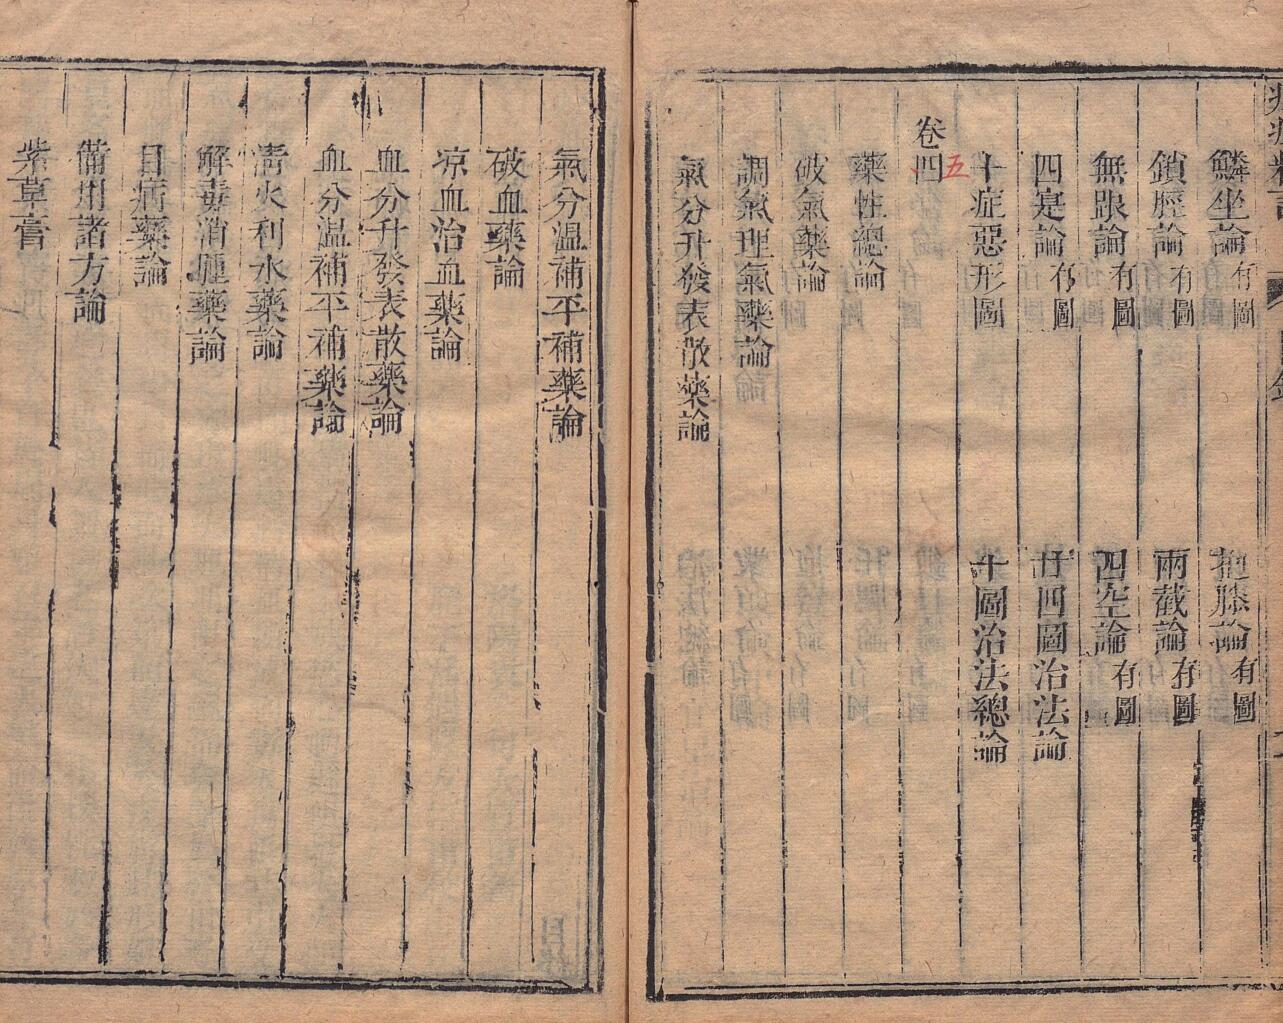 鱗坐論有圖　抱膝論有圖
鎖脛論有圖　兩截論有圖
無跟論有圖　四空論有圖
四寔論有圖　廿四圖治法論
十症惡形圖　十圖治法總論
卷四五
藥性總論
破氣藥論
調氣理氣藥論
氣分升發表散藥論
氣分温補平補藥論
破血藥論
凉血治血藥論
血分升發表散藥論
血分温補平補藥論
淸火利水藥論
解毒消腫藥論
目病藥論
備用諸方論
紫草膏